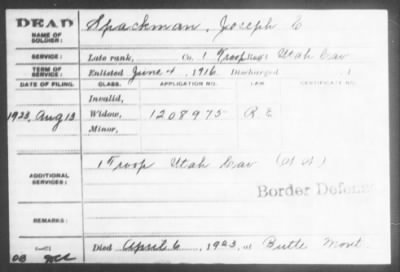 DEAD
NAME OF SOLDIER: Spackman, Joseph E
SERVICE: Late rank, Co. 1 Troop Reg't Utah Cav
TERM OF SERVICE: Enlisted June 4, 1916 Discharged , 1
DATE OF FILING. CLASS. APPLICATION NO. LAW. CERTIFICATE NO.
Invalid,
1923, Aug 13 Widow, 1208975 R.E.
Minor,
ADDITIONAL SERVICES: 1 Troop Utah Cav
Border Defense
REMARKS:
Died April 6, 1923, at Butte Mont.